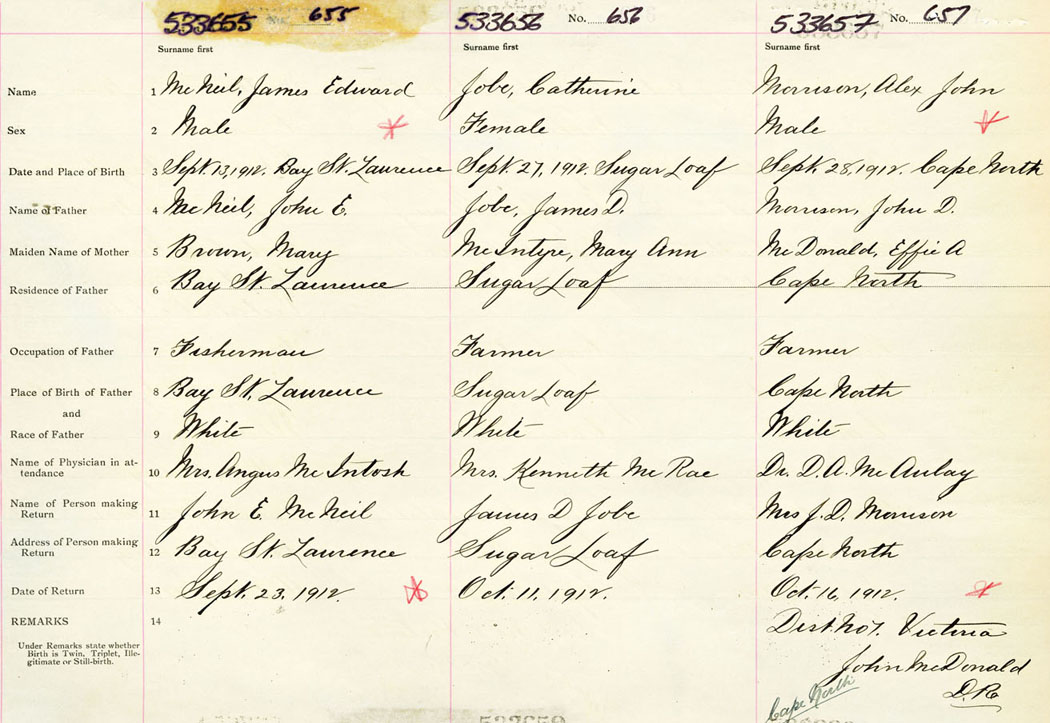 533655 No. 655 533656 No. 656 533657 No. 657
Surname first Surname first Surname first
Name 1 McNeil, James Edward Jobe, Catherine Morrison, Alex John
Sex 2 Male Female Male
Date and Place of Birth 3 Sept. 13, 1912. Bay St. Laurence Sept. 27, 1912. Sugar Loaf Sept. 28, 1912. Cape North
Name of Father 4 McNeil, John E. Jobe, James D. Morrison, John D.
Maiden Name of Mother 5 Brown, Mary McIntyre, Mary Ann McDonald, Effie A
Residence of Father 6 Bay St. Laurence Sugar Loaf Cape North
Occupation of Father 7 Fisherman Farmer Farmer
Place of Birth of Father 8 Bay St. Laurence Sugar Loaf Cape North
and
Race of Father 9 White White White
Name of Physician in at-
tendance 10 Mrs. Angus McIntosh Mrs. Kenneth McRae Dr. D. A. McAulay
Name of Person making
Return 11 John E. McNeil James D Jobe Mrs J. D. Morrison
Address of Person making
Return 12 Bay St. Laurence Sugar Loaf Cape North
Date of Return 13 Sept. 23, 1912. Oct. 11, 1912. Oct. 16, 1912.
REMARKS 14 Dist. No 7. Victoria
Under Remarks state whether
Birth is Twin, Triplet, Ille-
gitimate or Still-birth.
John McDonald
D. R.
Cape North
533659